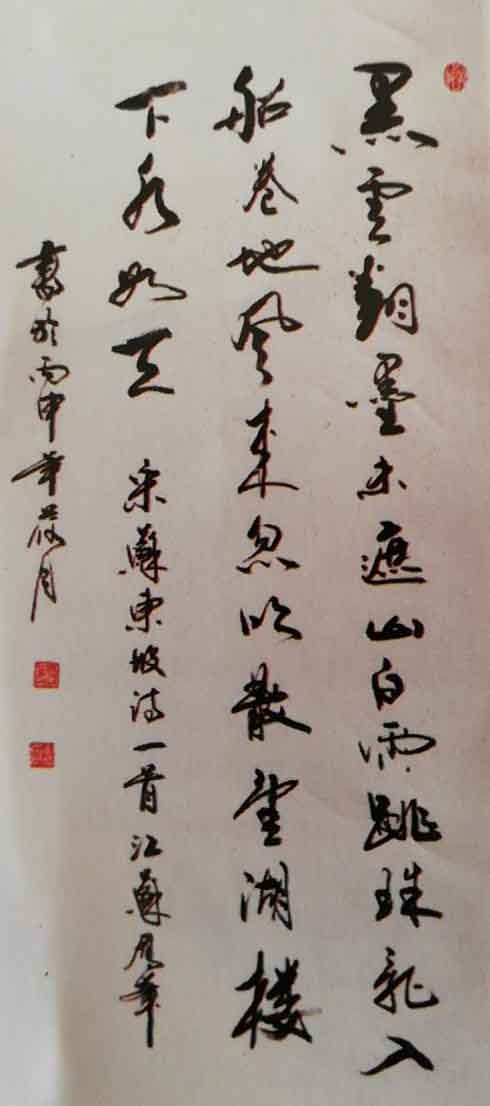 黑雲翻墨未遮山白雨跳珠乱入
船卷地風来忽吹散望湖楼
下水如天
宋蘇東坡诗一首江蘇风華
書於丙申年荷月